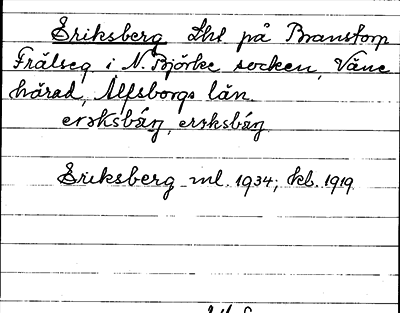 Eriksberg Lht på Branstorp
Frälseg i N. Björke socken, Väne
härad, Älfsborgs län.
erəksbárj, erəksbárj
Eriksberg ml. 1934; kb. 1919